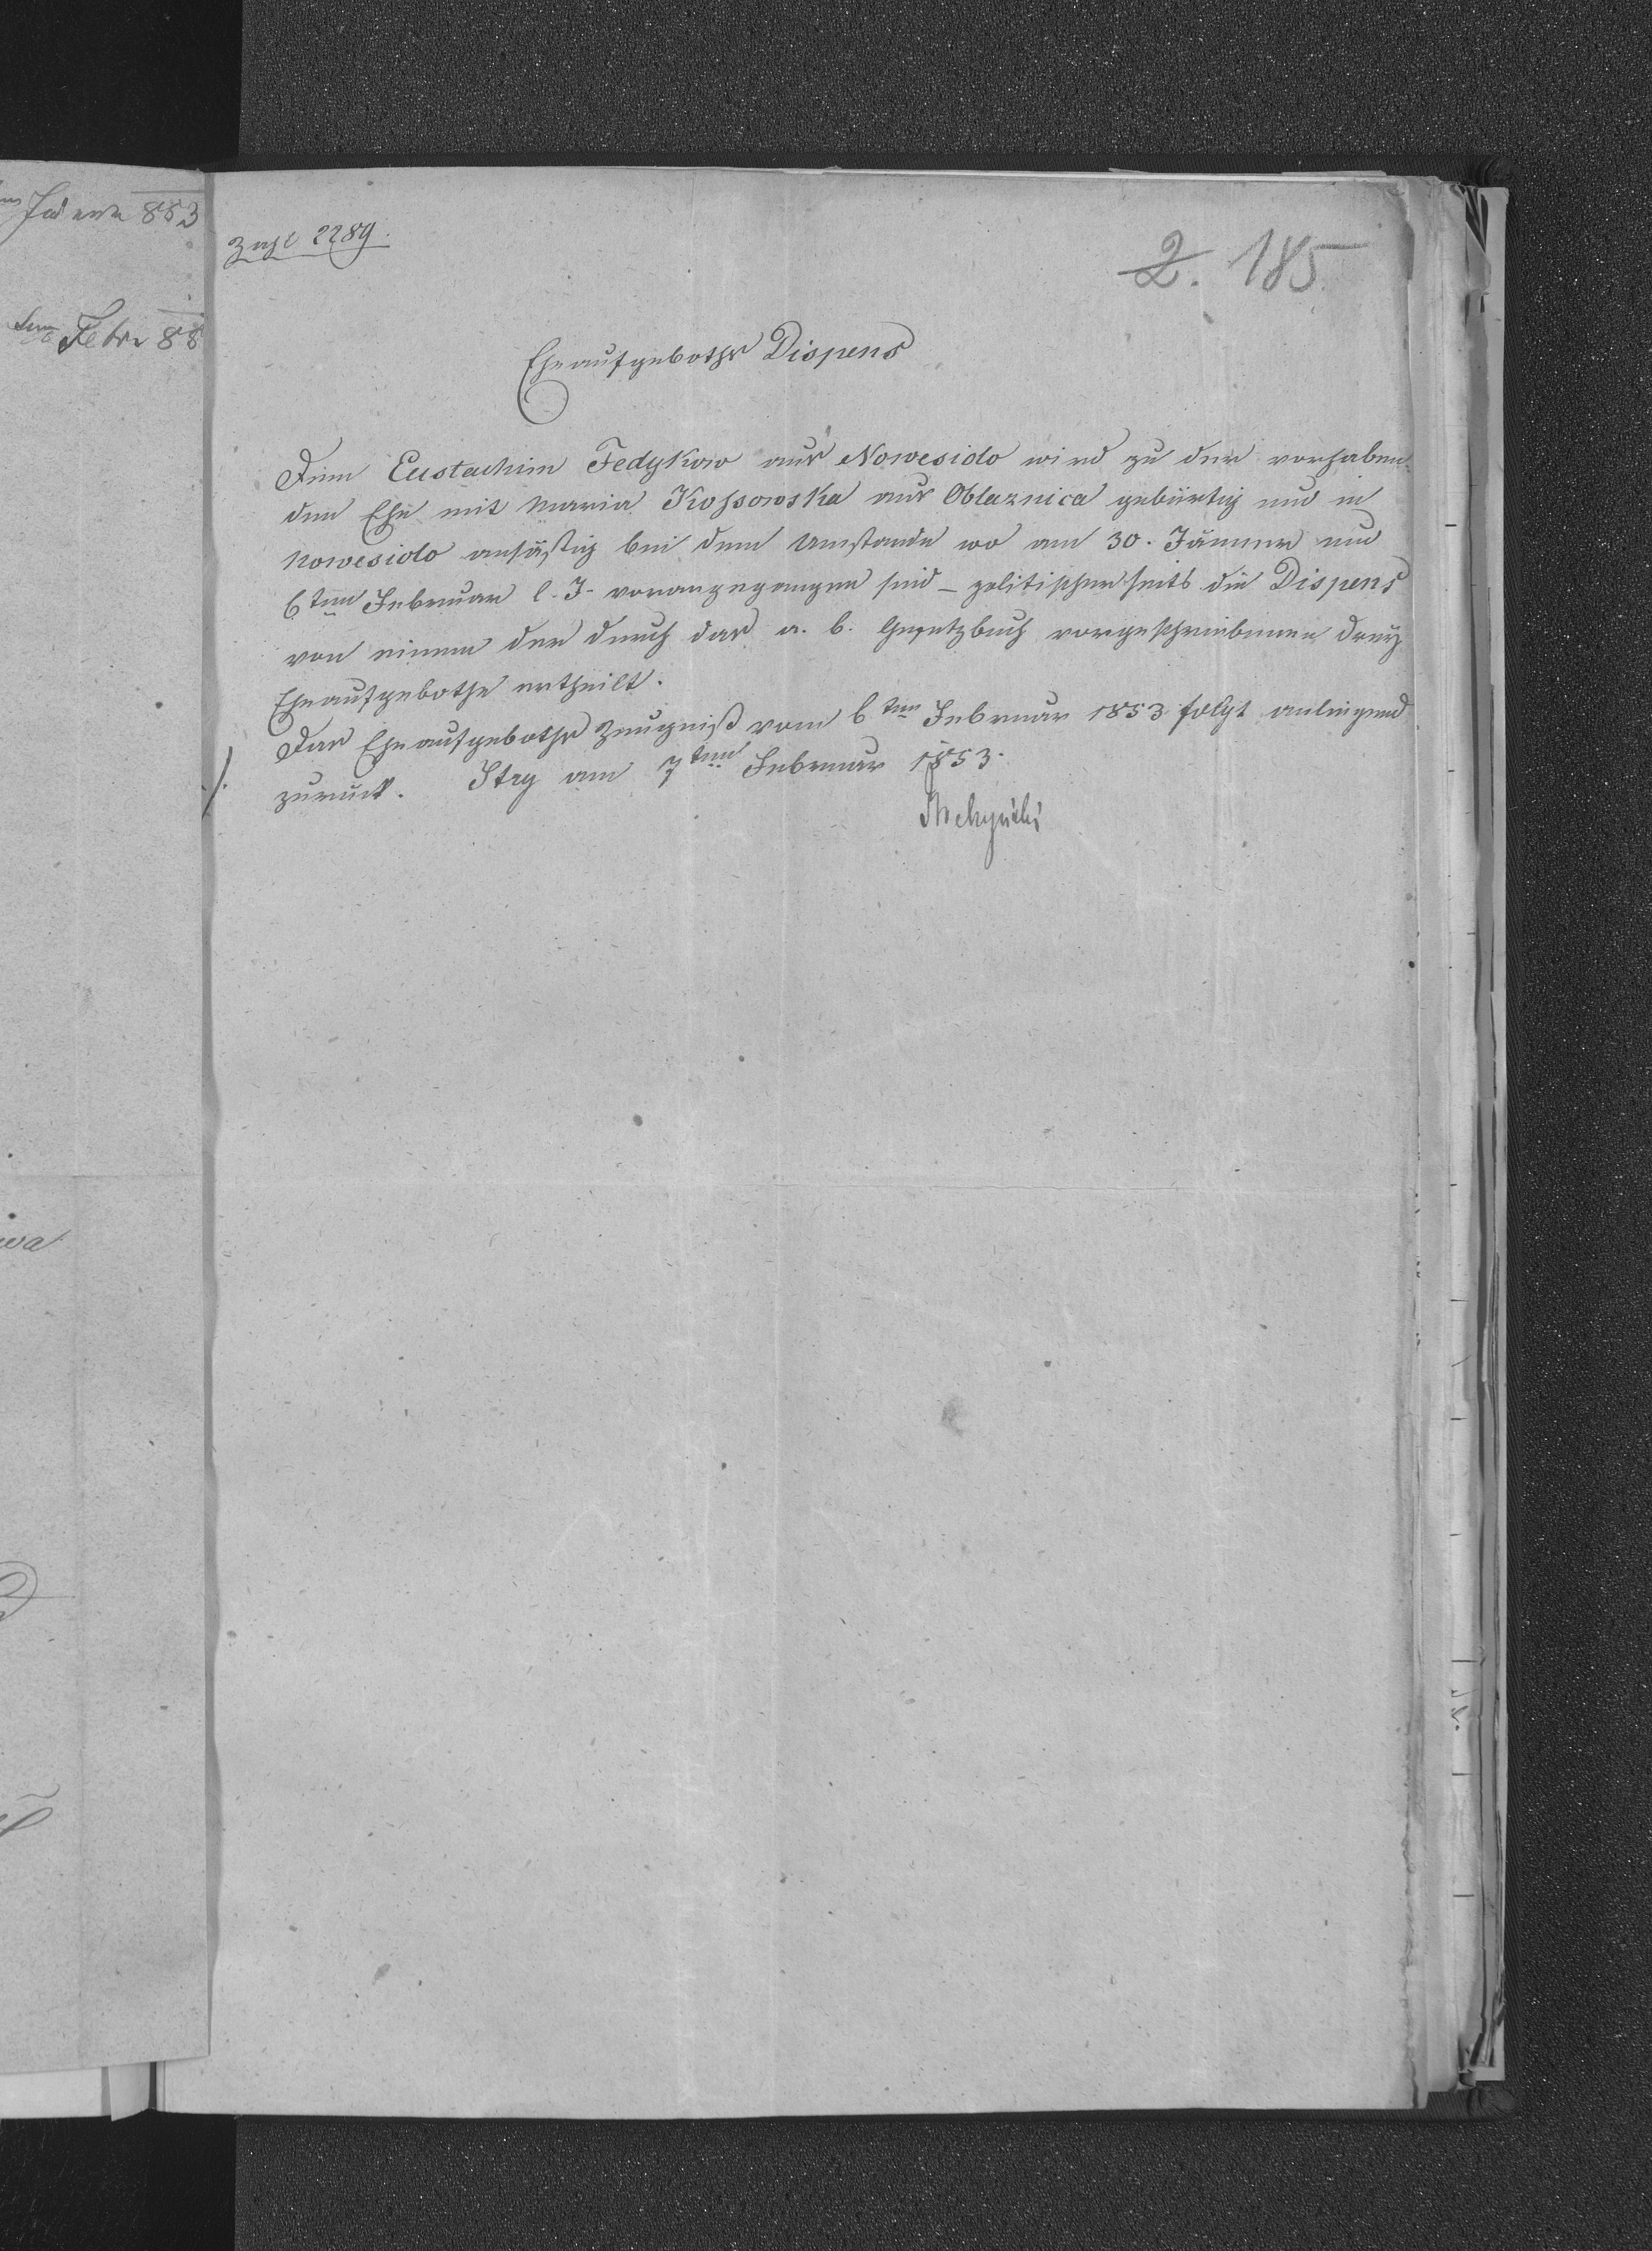 853
Febr 88
Zahl 2289.
2. 185.
Eheaufgeboths Dispens
Dem Eustachim Fedykow aus Nowesiolo wird zu der vorhaben-
den Ehe mit Maria Kossowska aus Oblaznica gebürtig und in
Nowesiolo ansäßig bei dem Umstande wo am 30. Jänner und
6ten Februar l. J. vorangegangen sind – politischerseits die Dispens
von einem der durch das a. b. Gesetzbuch vorgeschriebenen drey
Eheaufgebothe ertheilt.
Das Eheaufgeboths Zeugniß vom 6ten Februar 1853 folgt anliegend
./. zurück. Stry am 7ten Februar 1853.
wa